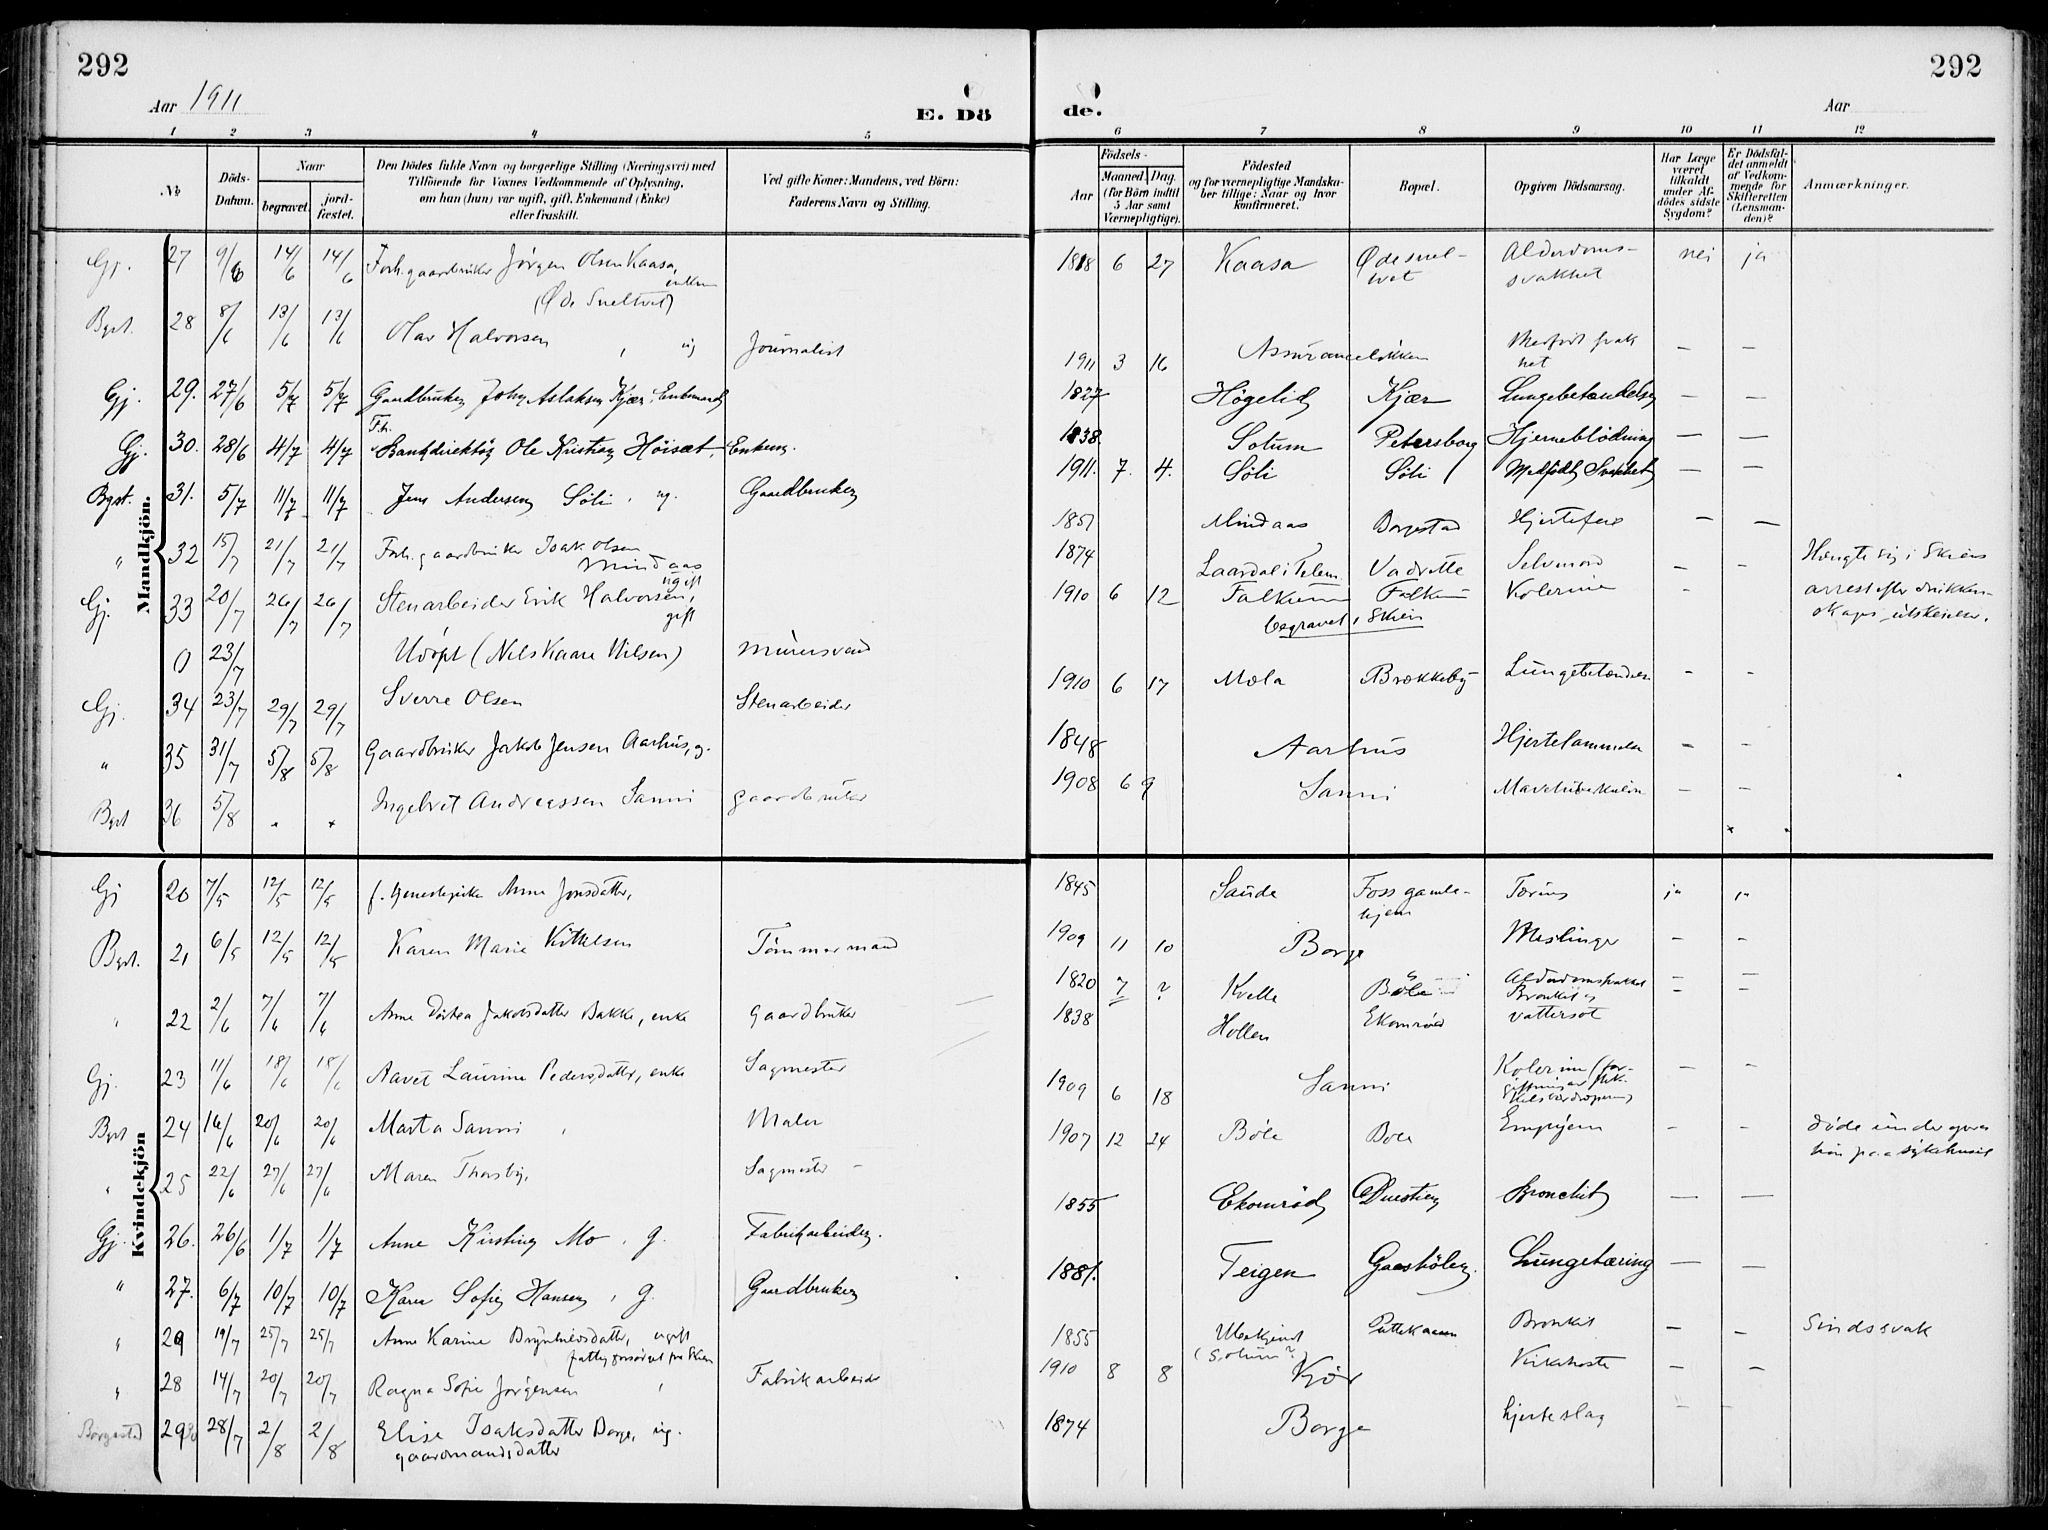 292
Aar 1911
E. Dö
1 2 3 4 5
№
Döds-Datum.
Naar
begravet.
jord-fæstet.
Den Dödes fulde Navn og borgerlige Stilling (Næringsvei) med
Tilföiende for Voxnes Vedkommende af Oplysning,
om han (hun) var ugift, gift, Enkemand (Enke)
eller fraskilt.
Ved gifte Koner: Mandens, ved Börn:
Faderens Navn og Stilling.
Mandkjön.
Gj. 27 9/6 14/6 14/6 Forh. gaardbruker Jørgen Olsen Kaasa, enkem
(Øde Sneltvet)
Bgst. 28 8/6 13/6 13/6 Olav Halvorsen, ug Journalist
Gj. 29. 27/6 5/7 5/7 Gaardbruker John Aslaksen Kjær, Enkemand
Gj. 30. 28/6 4/7 4/7 Fh. Bankdirektør Ole Kristian Höisæt, Enkem.
Bgst. 31. 5/7 11/7 11/7 Jens Andersen Söli, ug. Gaardbruker
" 32 15/7 21/7 21/7 Forh. gaardbruker Isak Olsen
Mindaas
ugift
Gj. 33 20/7 26/7 26/7 Stenarbeider Erik Halvorsen,
gift
0 23/7 Udøpt (Nils Kaare Nilsen) Murersvend
Gj. 34 23/7 29/7 29/7 Sverre Olsen Stenarbeider
" 35 31/7 5/8 5/8 Gaardbruker Jakob Jensen Aarhus, g.
Bgst 36 5/8 Ingebret Andreassen Sanni gaardbruker
Kvindekjön
Gj 20 7/5 12/5 12/5 Anne Jonsdatter,
Bgst. 21 6/5 12/5 12/5 Karen Marie Kittelsen Tømmermand
" 22 2/6 7/6 7/6 Anne Dortea Jakobsdatter Bakke, enke gaardbruker
Gj. 23 11/6 18/6 18/6 Laurine Pedersdatter, enke Sagmester
Bgst 24 14/6 20/6 20/6 Marta Sanni, Maler
" 25 22/6 27/6 27/6 Maren Thorsby, Sagmester
Gj. 26. 26/6 1/7 1/7 Anne Kirstine Mo, g. Fabrikarbeider.
" 27. 6/7 10/7 10/7 Karen Sofie Hansen, g. Gaardbruker
" 29 19/7 25/7 25/7 Anne Karine Brynhildsdatter, ugift
fattigforsørget fra Skien
" 28 14/7 20/7 20/7 Ragna Sofie Jørgensen, Fabrikarbeider
Borgestad 29 28/7 2/8 2/8 Elise Isaksdatter Borge, ug.
gaardmandsdatter
292
de.
Aar
6 7 8 9 10 11 12
Födsels-
Aar
Maaned.
Dag.
(for Börn indtil
5 Aar samt
Værnepligtige).
Födested
og for værnepligtige Mandska-
ber tillige: Naar og hvor
konfirmeret.
Bopæl.
Opgiven Dödsaarsag.
Har Læge
været
tilkaldt
under Af-
dödes sidste
Sygdom?
Er Dödsfal-
det anmeldt
af Vedkom-
mende for
Skifteretten
(Lensman-
den)?
Anmærkninger.
1818 6 27 Kaasa Øde snel-
tvet Alderdoms-
svakhet nei ja
1911 3 16 Assuranceløkken Medfødt svak
het — —
1827 Högelid Kjær Lungebetændelse — —
1838. Solum Petersborg Hjerneblödning — —
1911. 7. 4. Söli Söli Medfödt Svakhet — —
1851 Mindaas Borgestad Hjertefeil — —
1874 Laardal i Telem. Vadrette Selvmord — — Hængte sig i Skiens
arrest efter drikken-
skaps utskeielser.
1910 6 12 Falkum Falkum Kolerine -
begravet i Skien
1910 6 17 Mæla Brækkeby Lungebetændelse - -
1848 Aarhus Hjertelammelse - -
1908 6 9 Sanni Mavetuberkulose - -
1845 Saude Foss gamle-
hjem Tæring ja ja
1909 11 10 Borge Meslinger - -
1820 7 ? Kvelle Böle Alderdomssvakhet - -
1838 Hollen Ekornrød Bronkit og
vattersot - -
1909 6 18 Sanni Kolerine (for-
giftning - -
1907 12 24 Böle Bøle Empyem - - døde under opera
tion paa sykehuset
1855 Ekornröd Duestien Bronchit — —
1881. Teigen Gaashölen. Lungetæring — —
1855 (Solum?) Bronkit - - Sindssvak
1910 8 8 Kjør Kikhoste - -
1874 Borge hjerteslag - -